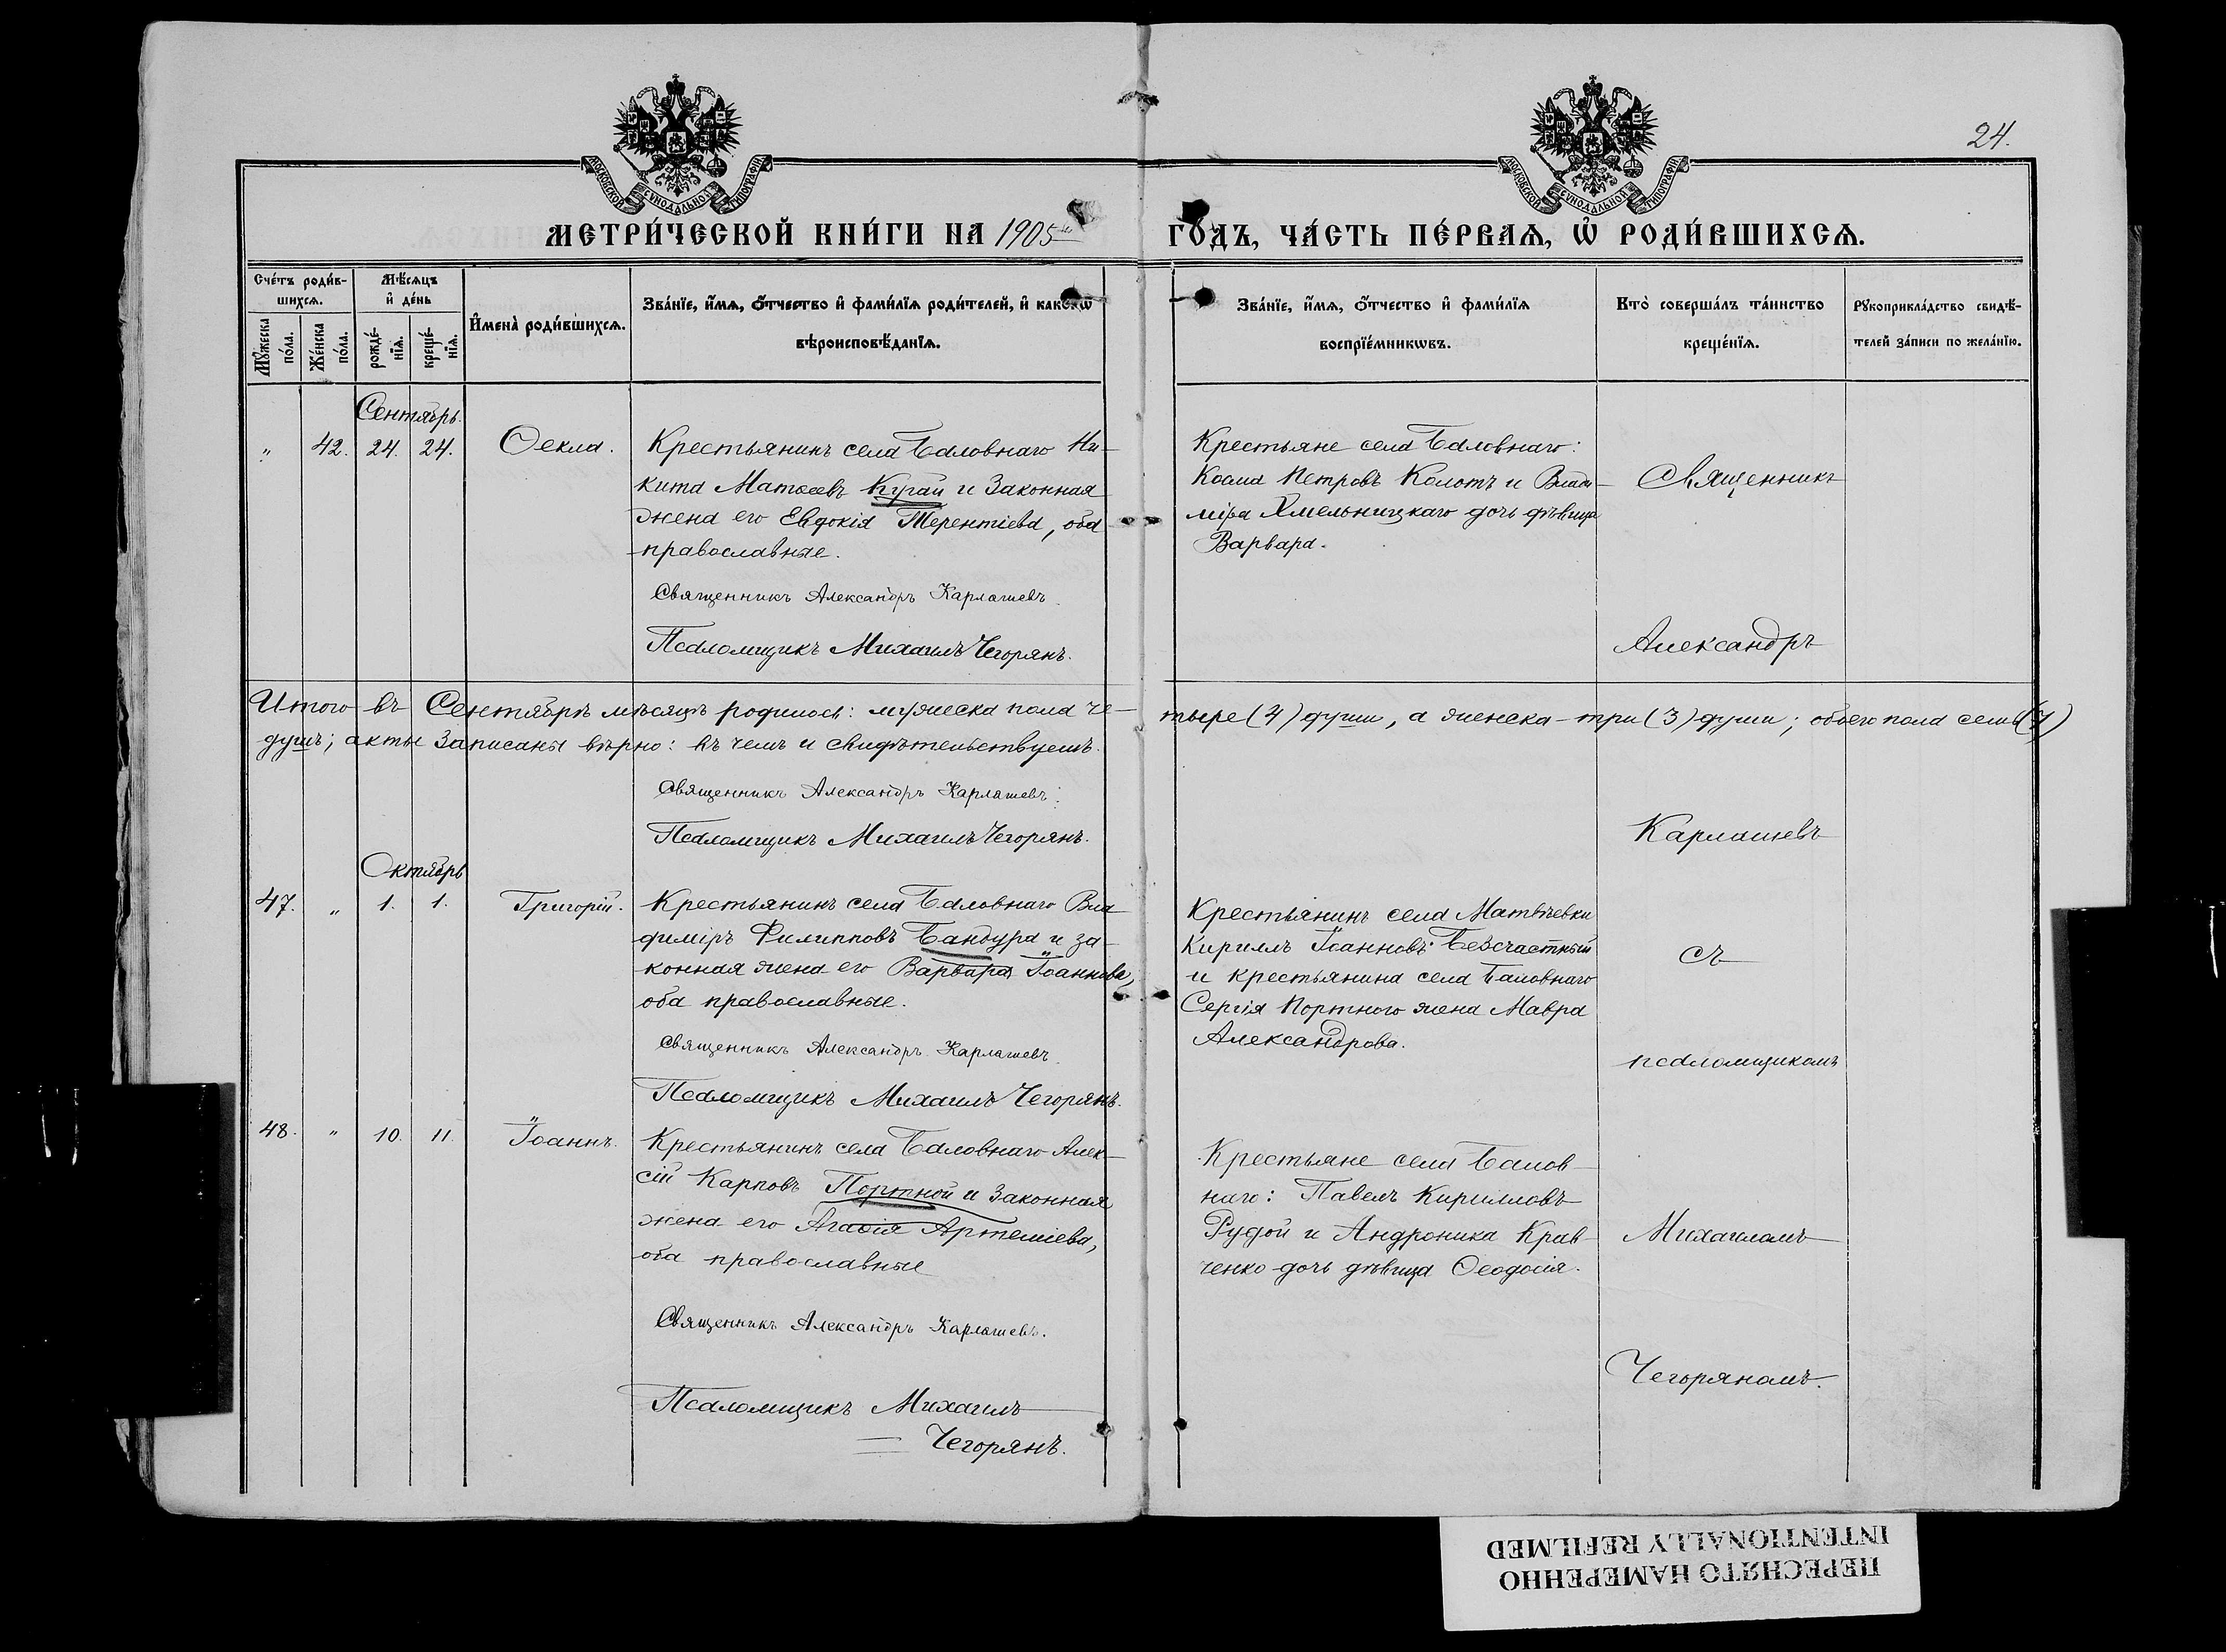 24.
МОСКОВСКОЙ СѴНОДАЛЬНОЙ ТИПОГРАФІИ
МОСКОВСКОЙ СѴНОДАЛЬНОЙ ТИПОГРАФІИ
МЕТРИ́ЧЕСКОЙ КНИ́ГИ НА 1905 ГО́ДЪ, ЧА́СТЬ ПЕ́РВАѦ, Ѡ РОДИ́ВШИХСѦ.
Сче́тъ роди́в-
шихсѧ.
Мꙋ́жеска по́ла.
Же́нска по́ла.
Мѣ́сѧцъ
и҆ де́нь
рожде́-
нїѧ.
креще́-
нїѧ.
И҆мена̀ роди́вшихсѧ.
Зва́нїе, и҆́мѧ, ѻ҆́тчество и҆ фами́лїѧ роди́телей, и҆ како́гѡ
вѣроисповѣ́данїѧ.
Зва́нїе, и҆́мѧ, ѻ҆́тчество и҆ фами́лїѧ
воспрїе́мникѡвъ.
Кто̀ соверша́лъ та́инство
креще́нїѧ.
Рꙋкоприкла́дство свидѣ́-
телей за́писи по жела́нїю.
Сентябрь.
„ 42. 24. 24. Ѳекла.
Крестьянинъ села Баловнаго Ни-
кита Матѳеевъ Курай и законная
жена его Евдокія Терентіева, оба
православные.
Священникъ Александръ Карлашевъ.
Псаломщикъ Михаилъ Чегорянъ.
Крестьяне села Баловнаго:
Косма Петровъ Колотъ и Влади-
міра Хмельницкаго дочь дѣвица
Варвара.
Священникъ
Александръ
Итого въ Сентябрѣ мѣсяцѣ родилось: мужеска пола че- тыре (4) души, а женска - три (3) души; обоего пола семь (7)
душъ; акты записаны вѣрно: въ чемъ и свидѣтельствуемъ.
Священникъ Александръ Карлашевъ.
Псаломщикъ Михаилъ Чегорянъ.
Карлашевъ
Октябрь
47. „ 1. 1. Григорій.
Крестьянинъ села Баловнаго Вла-
диміръ Филипповъ Бандура и за-
конная жена его Варвара Іоаннова,
оба православные.
Священникъ Александръ Карлашевъ.
Псаломщикъ Михаилъ Чегорянъ.
Крестьянинъ села Матвѣевки
Кириллъ Іоанновъ Безсчастный
и крестьянина села Баловнаго
Сергія Портного жена Мавра
Александрова.
съ
псаломщикомъ
48. „ 10. 11. Іоаннъ.
Крестьянинъ села Баловнаго Алек-
сій Карповъ Портной и законная
жена его Агафія Артеміева,
оба православные
Священникъ Александръ Карлашевъ.
Псаломщикъ Михаилъ
Чегорянъ.
Крестьяне села Балов-
наго: Павелъ Кирилловъ
Рудой и Андроника Крав-
ченко дочь дѣвица Ѳеодосія.
Михаиломъ
Чегоряномъ.
ПЕРЕСНЯТО НАМЕРЕННО
INTENTIONALLY REFILMED